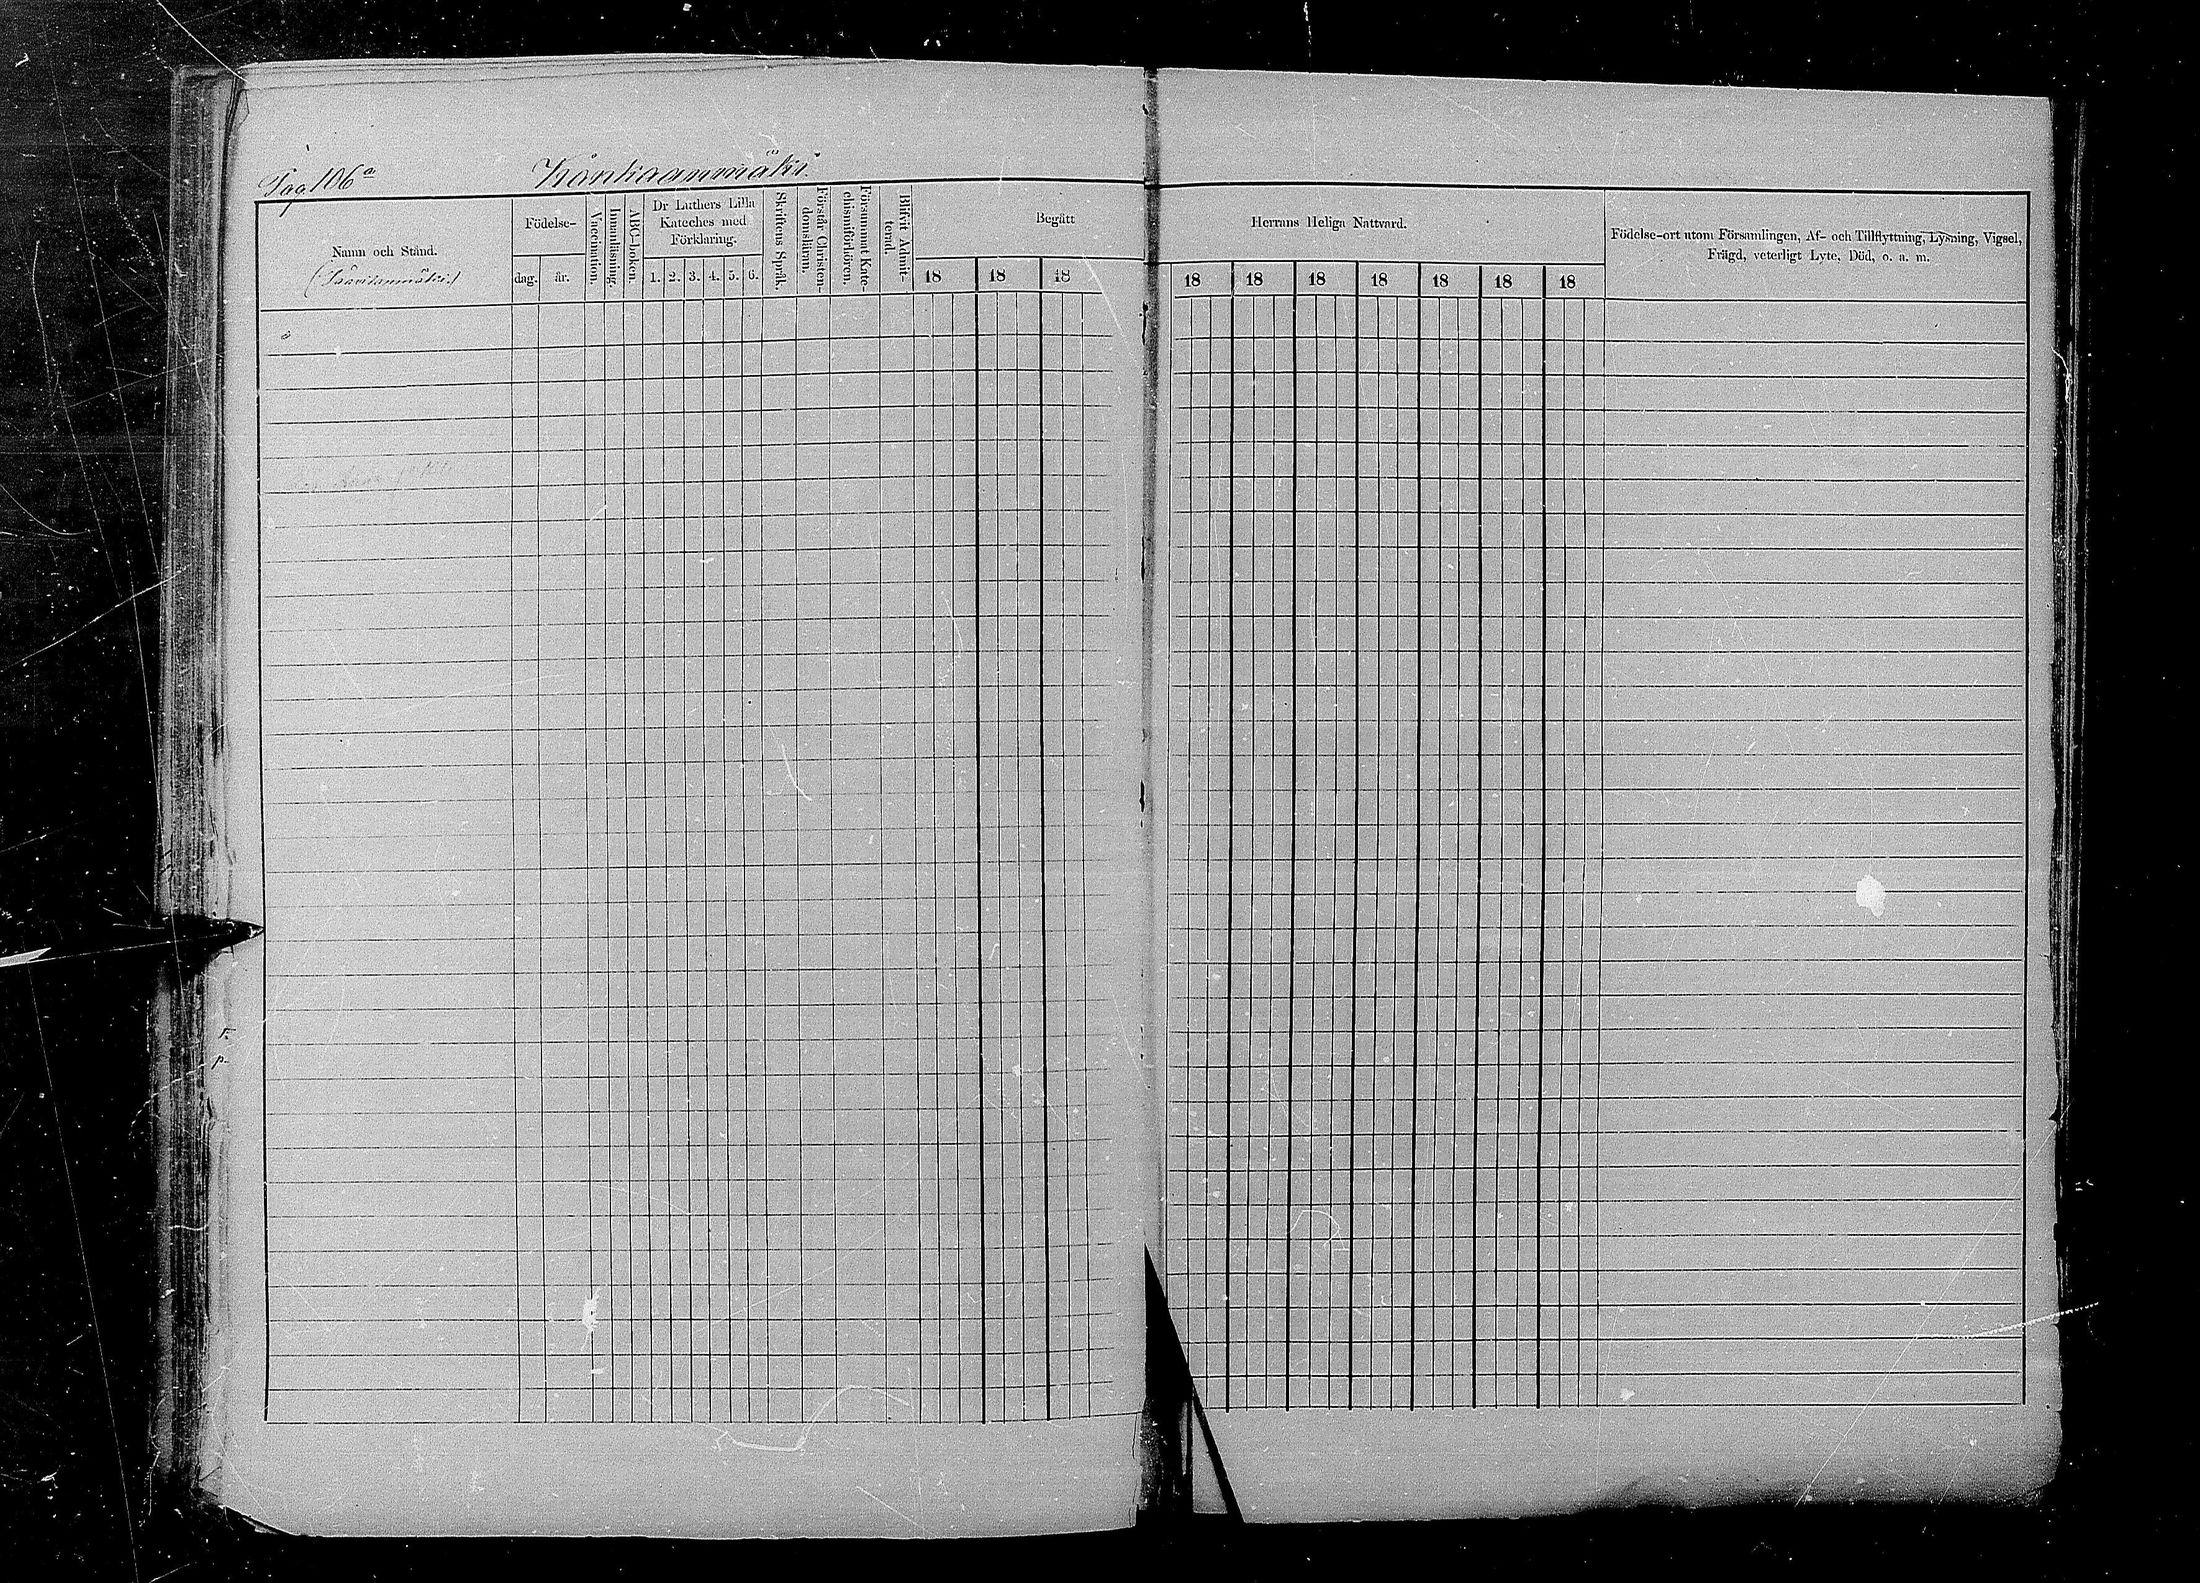 Pag. 106a
Kånkaanmäki.
Namn och Stånd.
(Saavilanmäki.)
Födelse-
dag. år.
Vaccination.
Innanläsning.
ABC-boken.
Dr Luthers Lilla
Kateches med
Förklaring.
1. 2. 3. 4. 5. 6.
Skriftens Språk.
Förstår Christen-
domsläran.
Försummat Kate-
chismiförhören.
Blifvit Admit-
terad.
Begått
18 18 18
Herrans Heliga Nattvard.
18 18 18 18 18 18 18
Födelse-ort utom Församlingen, Af- och Tillflyttning, Lysning, Vigsel,
Frägd, veterligt Lyte, Död, o. a. m.
F.
p.